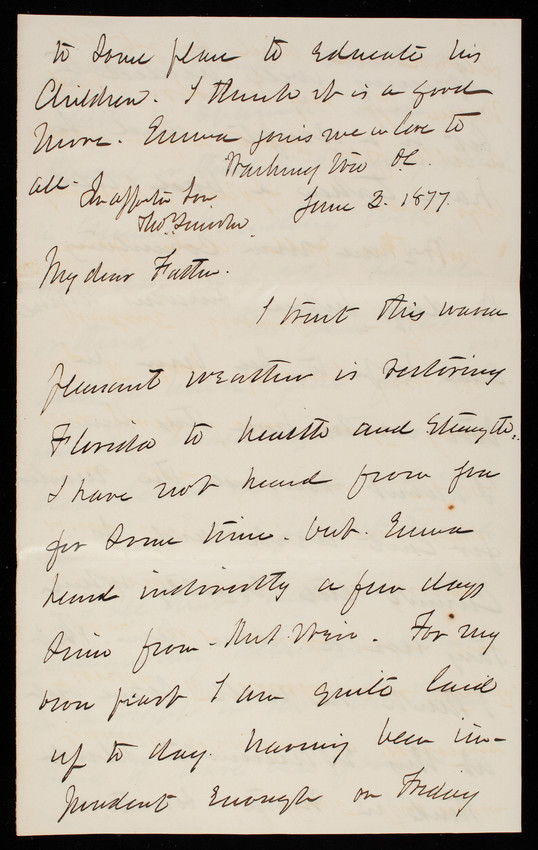 to some place to educate his
Children. I think it is a good
move. Emma joins me in love to
all.
Washington DC.
June 3. 1877
Yr affecte Son
Thos. Lincoln
My dear Father.
I trust this warm
pleasant weather is restoring
Florida to health and strength.
I have not heard from you
for some time. but. Emma
heard indirectly a few days
since from
For my
own part I am quite laid
up to day. having been im-
prudent enough on Friday